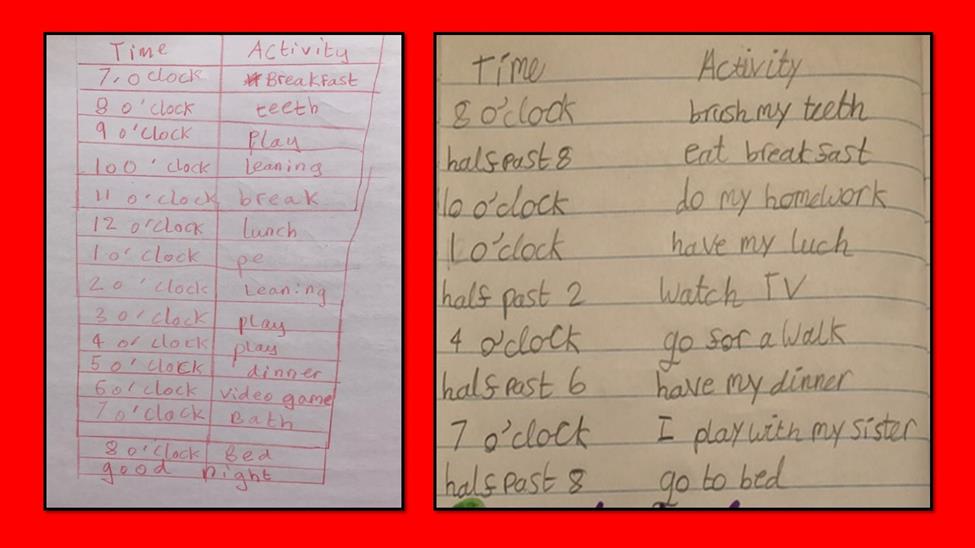 Time Activity
7,0 clock Breakfast
8 o'clock teeth
9 o'clock Play
10 o'clock leaning
11 o'clock break
12 o'clock lunch
1 o'clock pe
2 o'clock Leaning
3 o'clock play
4 o'clock play
5 o'clock dinner
6 o'clock video game
7 o'clock Bath
8 o'clock Bed
good night
Time Activity
8 o'clock brush my teeth
half past 8 eat breakfast
10 o'clock do my homework
1 o'clock have my luch
half past 2 Watch TV
4 o'clock go for a walk
half past 6 have my dinner
7 o'clock I play with my sister
half past 8 go to bed